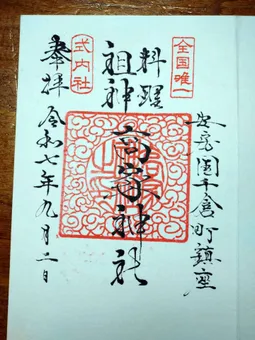 安房國千倉町鎮座
全国唯一
料理
祖神
高家神社
式内社
奉拝
令和七年九月二日